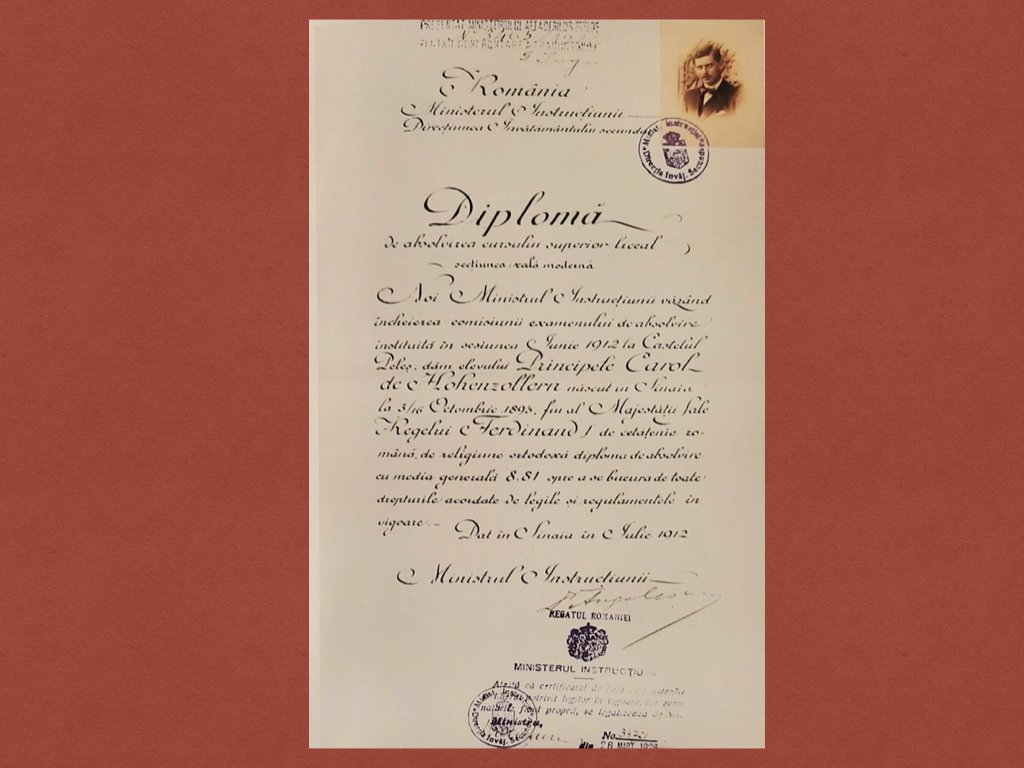 PREZENTAT MINISTERULUI AFACERILOR STRĂINE
România
Ministerul Instrucțiunii
Direcțiunea Învățământului secundar
Mi-rul Instrucției
Direcția Învăț. Secundar
Diplomă
de absolvirea cursului superior liceal
secțiunea reală modernă
Noi Ministrul Instrucțiunii văzând
încheierea comisiunii examenului de absolvire
instituită în sesiunea Iunie 1912 la Castelul
Peleș, dăm elevului Principele Carol
de Hohenzollern născut în Sinaia
la 3/16 Octombrie 1893, fiu al Majestății Sale
Regelui Ferdinand I de cetățenie ro-
mână, de religiune ortodoxă diploma de absolvire
cu media generală 8.81 spre a se bucura de toate
drepturile acordate de legile și regulamentele în
vigoare.-
Dat în Sinaia în Iulie 1912
Ministrul Instrucțiunii
Dr Angelescu
REGATUL ROMANIEI
MINISTERUL INSTRUCȚIU
că certificatul de față
potrivit legilor în vigoare,
fiind proprii, se legalizează de
Ministru,
Direcția Învăț. Secundar
No.
din 26 MART. 1926